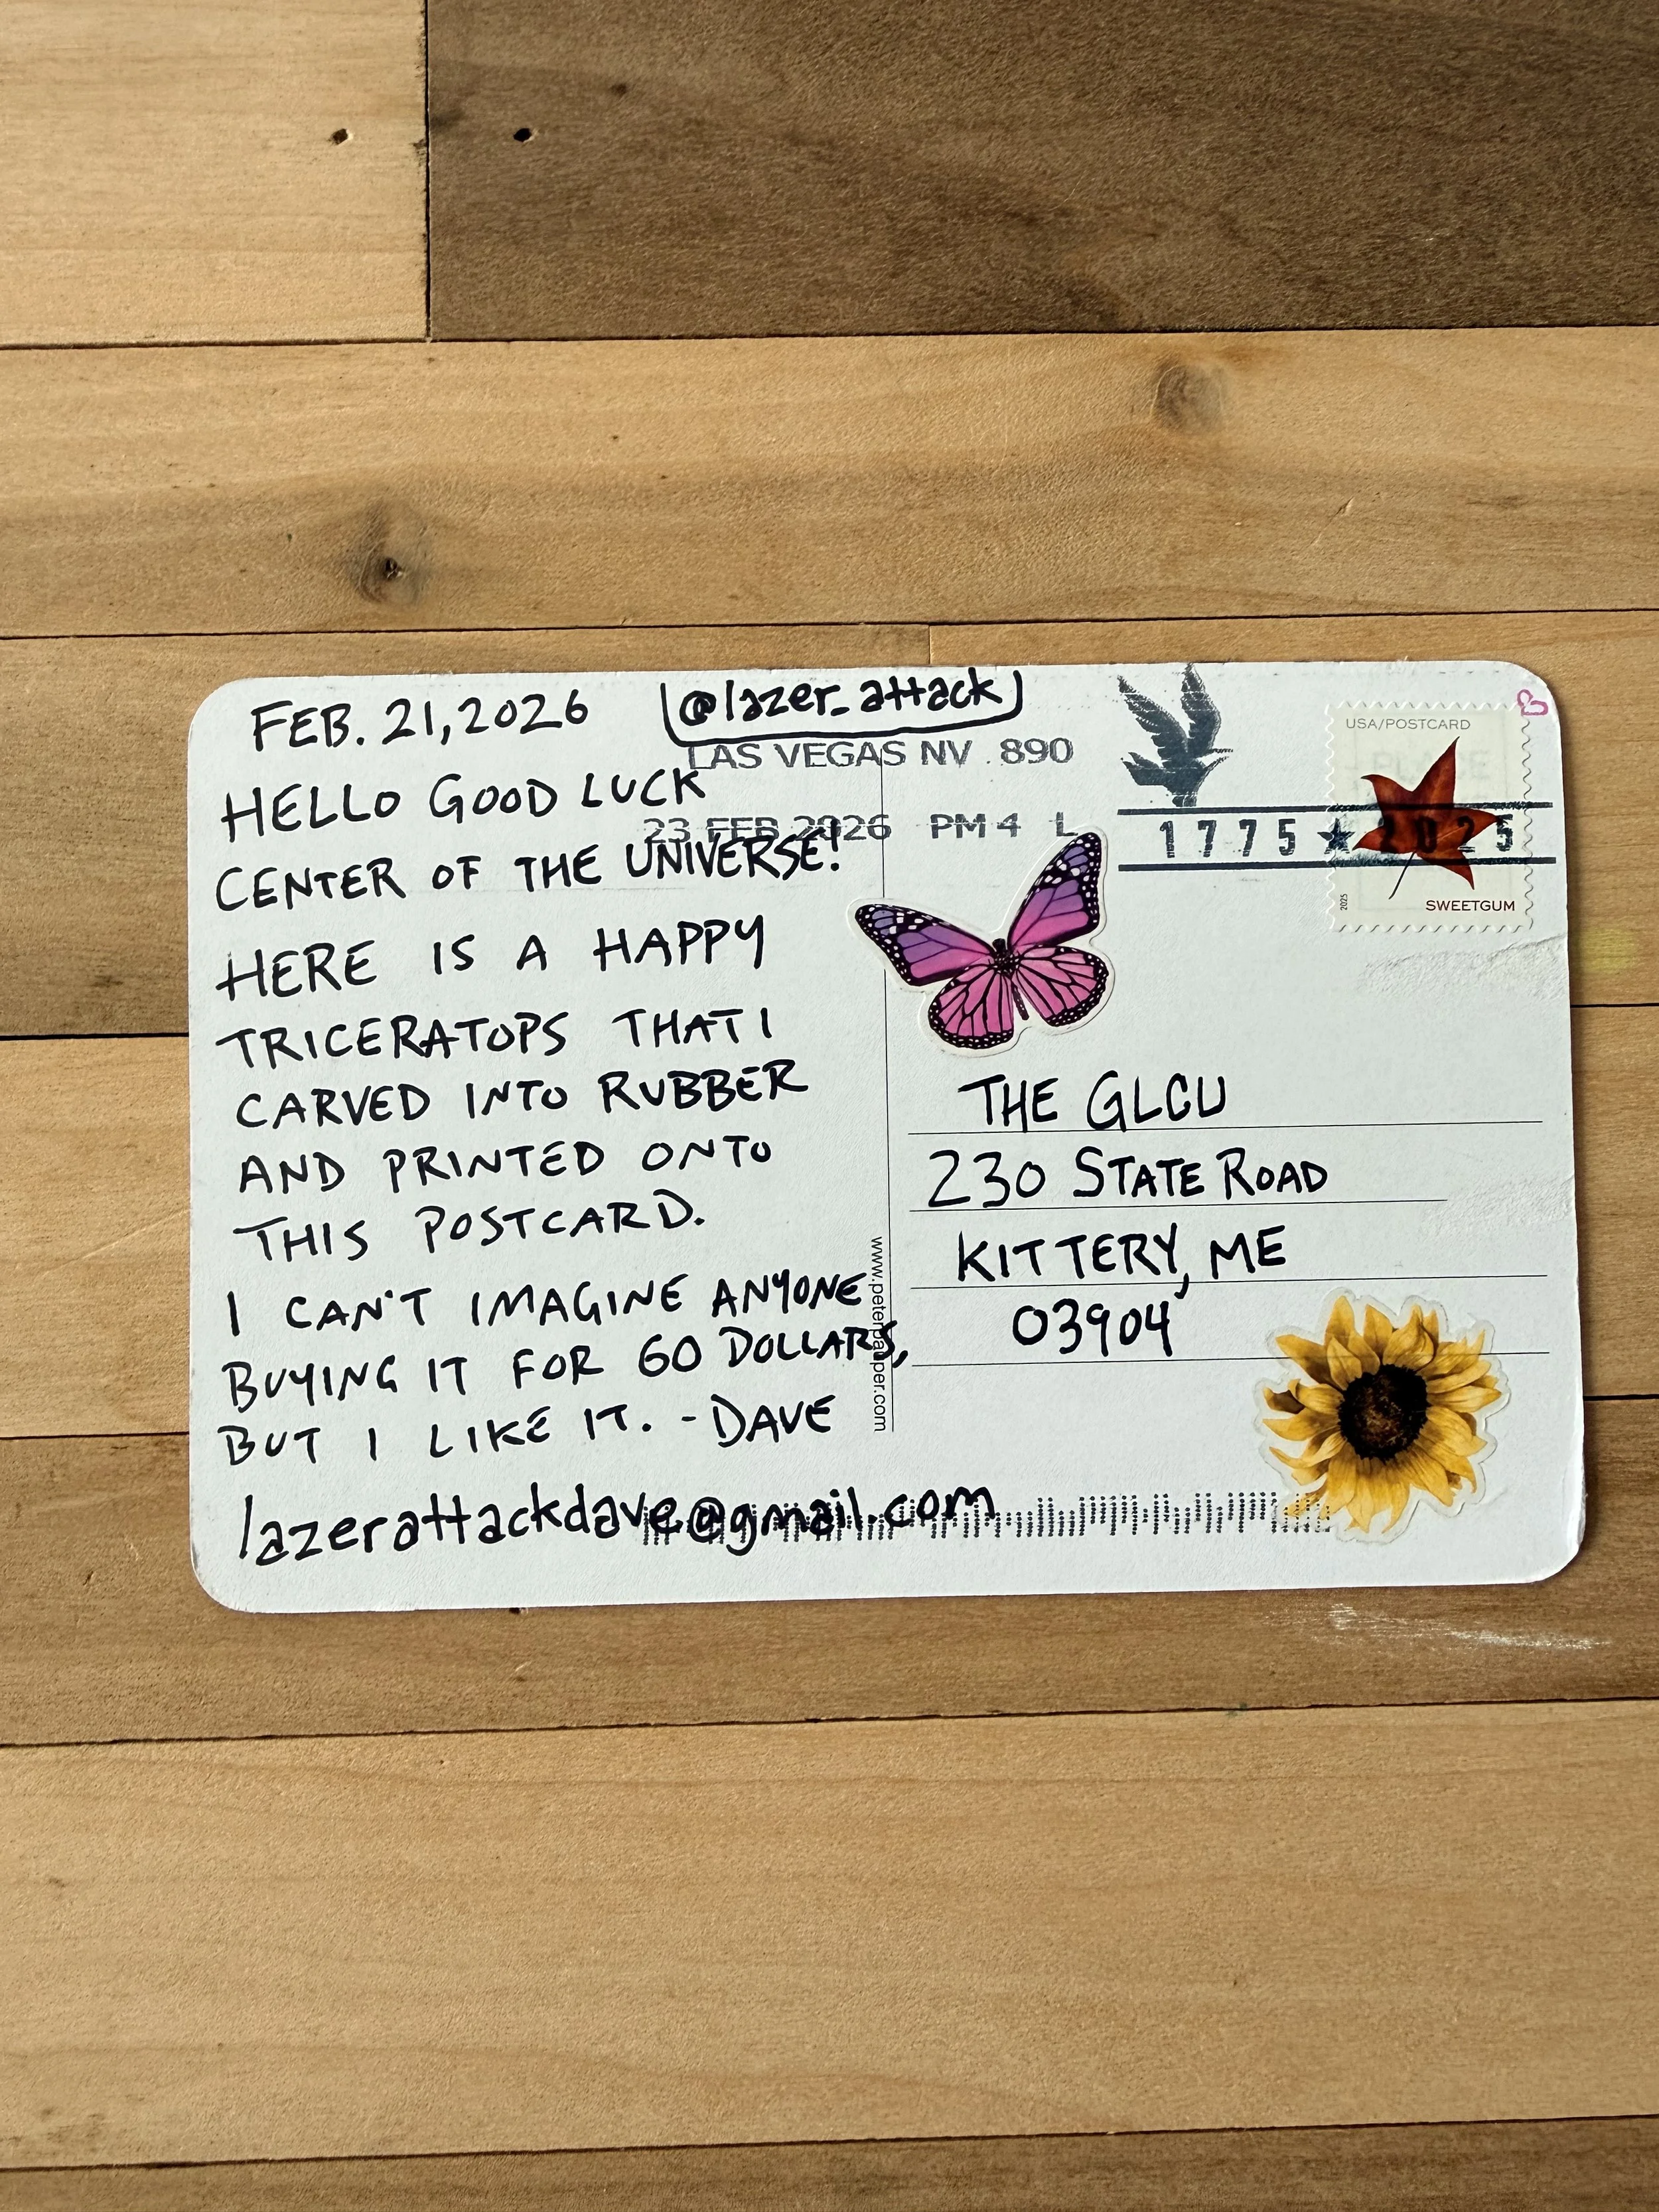 FEB. 21, 2026
@lazer_attack
LAS VEGAS NV 890
23 FEB 2026 PM 4 L
1775 ★ 2025
USA/POSTCARD
2025
SWEETGUM
HELLO GOOD LUCK
CENTER OF THE UNIVERSE!
HERE IS A HAPPY
TRICERATOPS THAT I
CARVED INTO RUBBER
AND PRINTED ONTO
THIS POSTCARD.
I CAN'T IMAGINE ANYONE
BUYING IT FOR 60 DOLLARS,
BUT I LIKE IT. -DAVE
lazerattackdave@gmail.com
www.peterpauper.com
THE GLCU
230 STATE ROAD
KITTERY, ME
03904